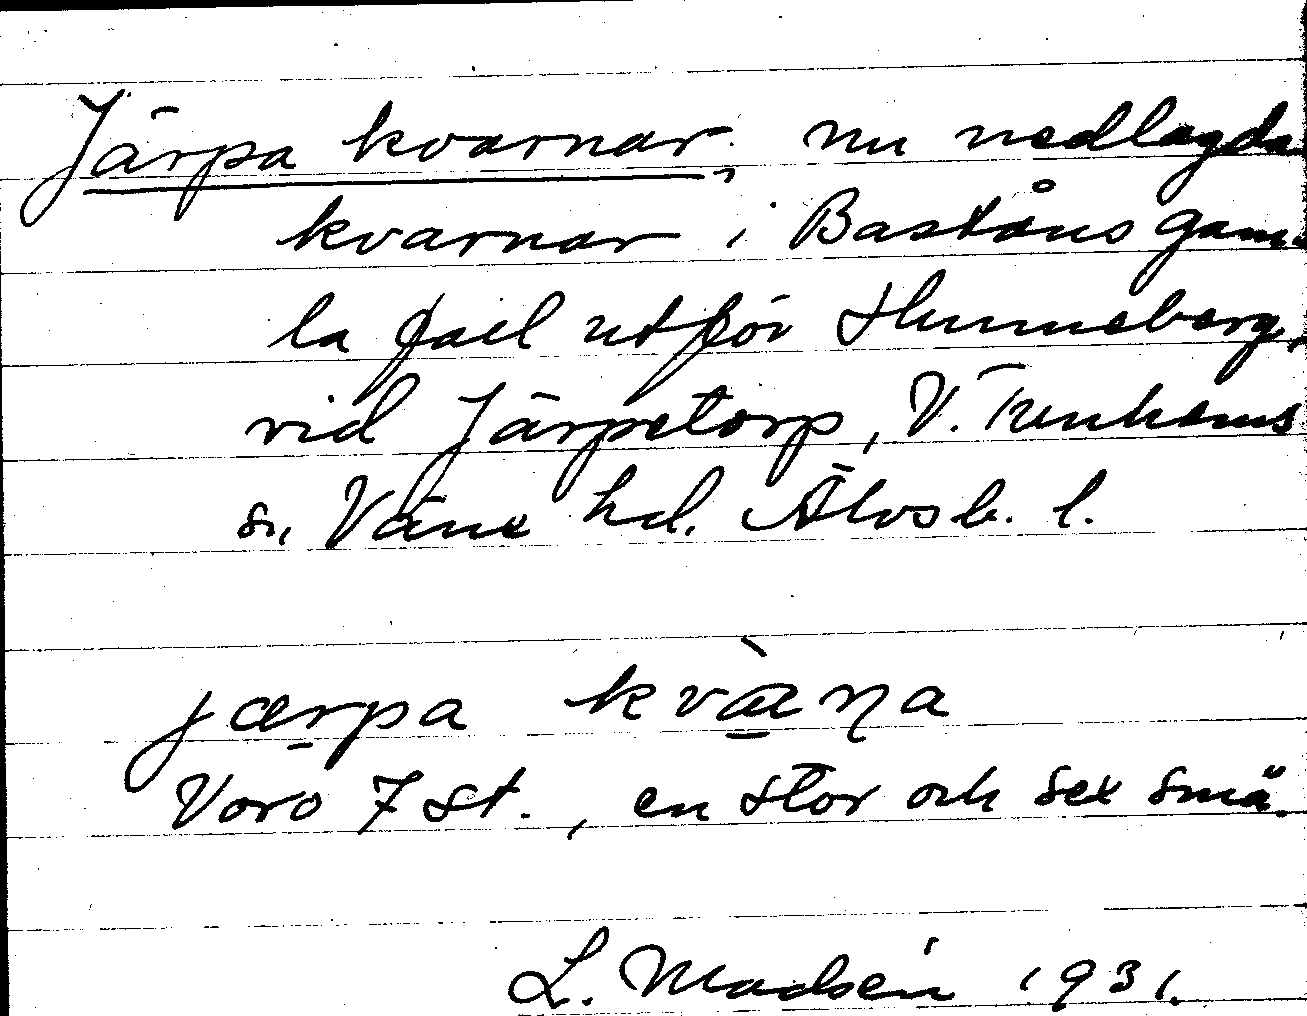 Järpa kvarnar, nu nedlagda
kvarnar i Baståns gam-
la fåll utför Hunneberg,
vid Järpetorp, V. Tunhems
sn, Väne hd. Älvsb. l.
jærpa kvæ̀ɳa
Voro 7 st., en stor och sex små.
L. Madsén 1931.